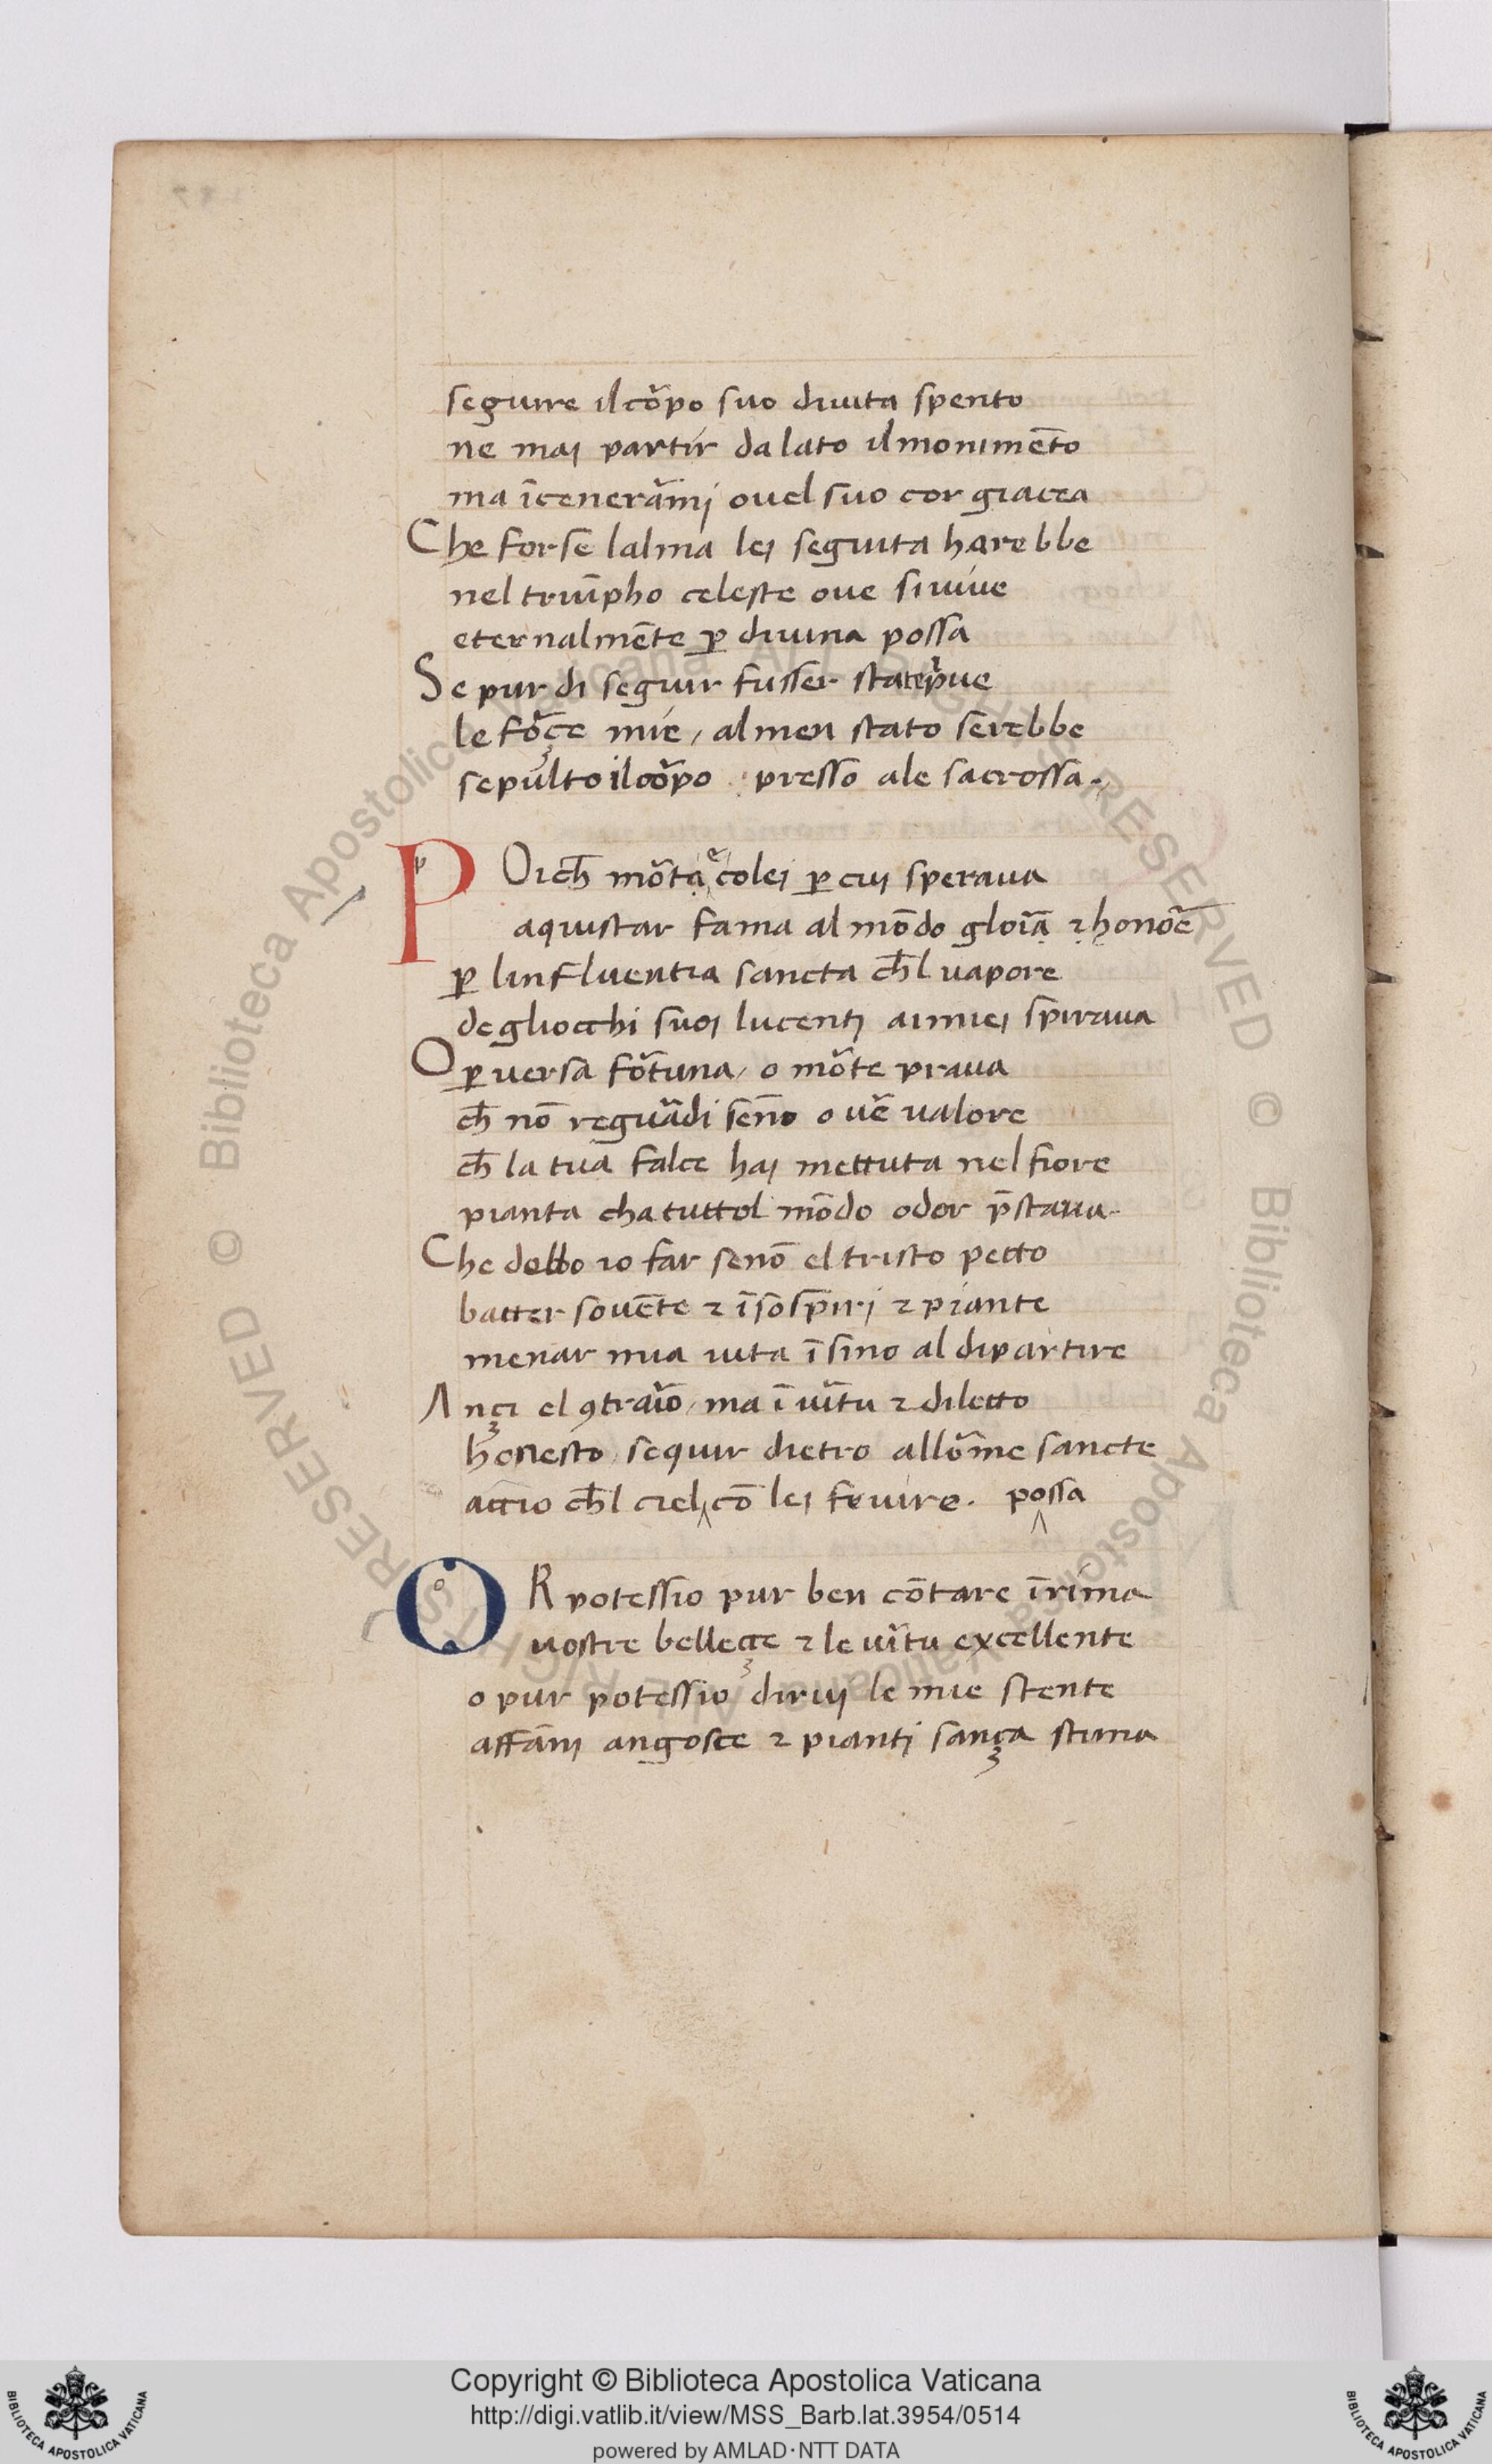 seguire il cõpo suo diuita spento
ne maj partir da lato il monumẽto
ma ĩcenerãmj ouel suo cor giacea
Che forse lalma lej seguita harebbe
nel triũpho celeste oue si uiue
eternalmẽte ꝑ diuina possa
Se pur di seguir fusser state p̃ue
le fõçe mie, almen stato serebbe
sepulto il cõpo presso ale sacrossa.
POich̃ mõta e colej ꝑ cuj speraua
aquistar fama al mõdo gloĩa ⁊ honoẽ
ꝑ linfluentia sancta ch̃l uapore
degliocchi suoj lucentj aimiej sp̃iraua
O ꝑuersa fõtuna, o mõte praua
ch̃ nõ reguãdi sẽno o uẽ ualore
ch̃ la tua falce haj mettuta nel fiore
pianta cha tuttol mõdo odor p̃staua.
Che debbo io far senõ el tristo petto
batter souẽte ⁊ ĩ sosp̃irj ⁊ piante
menar mia uita ĩsino al dipartire
Ançi el ꝯtraĩo, ma ĩ uĩtu ⁊ diletto
honesto sequir dietro allõme sancte
accio ch̃l ciel cõ lej fruire. possa
OR potessio pur ben cõtare ĩ rima
uostre belleçe ⁊ le uĩtu excellente
o pur potessio diruj le mie stente
affãnj angosce ⁊ piantj sança stima
Copyright © Biblioteca Apostolica Vaticana
http://digi.vatlib.it/view/MSS_Barb.lat.3954/0514
powered by AMLAD·NTT DATA